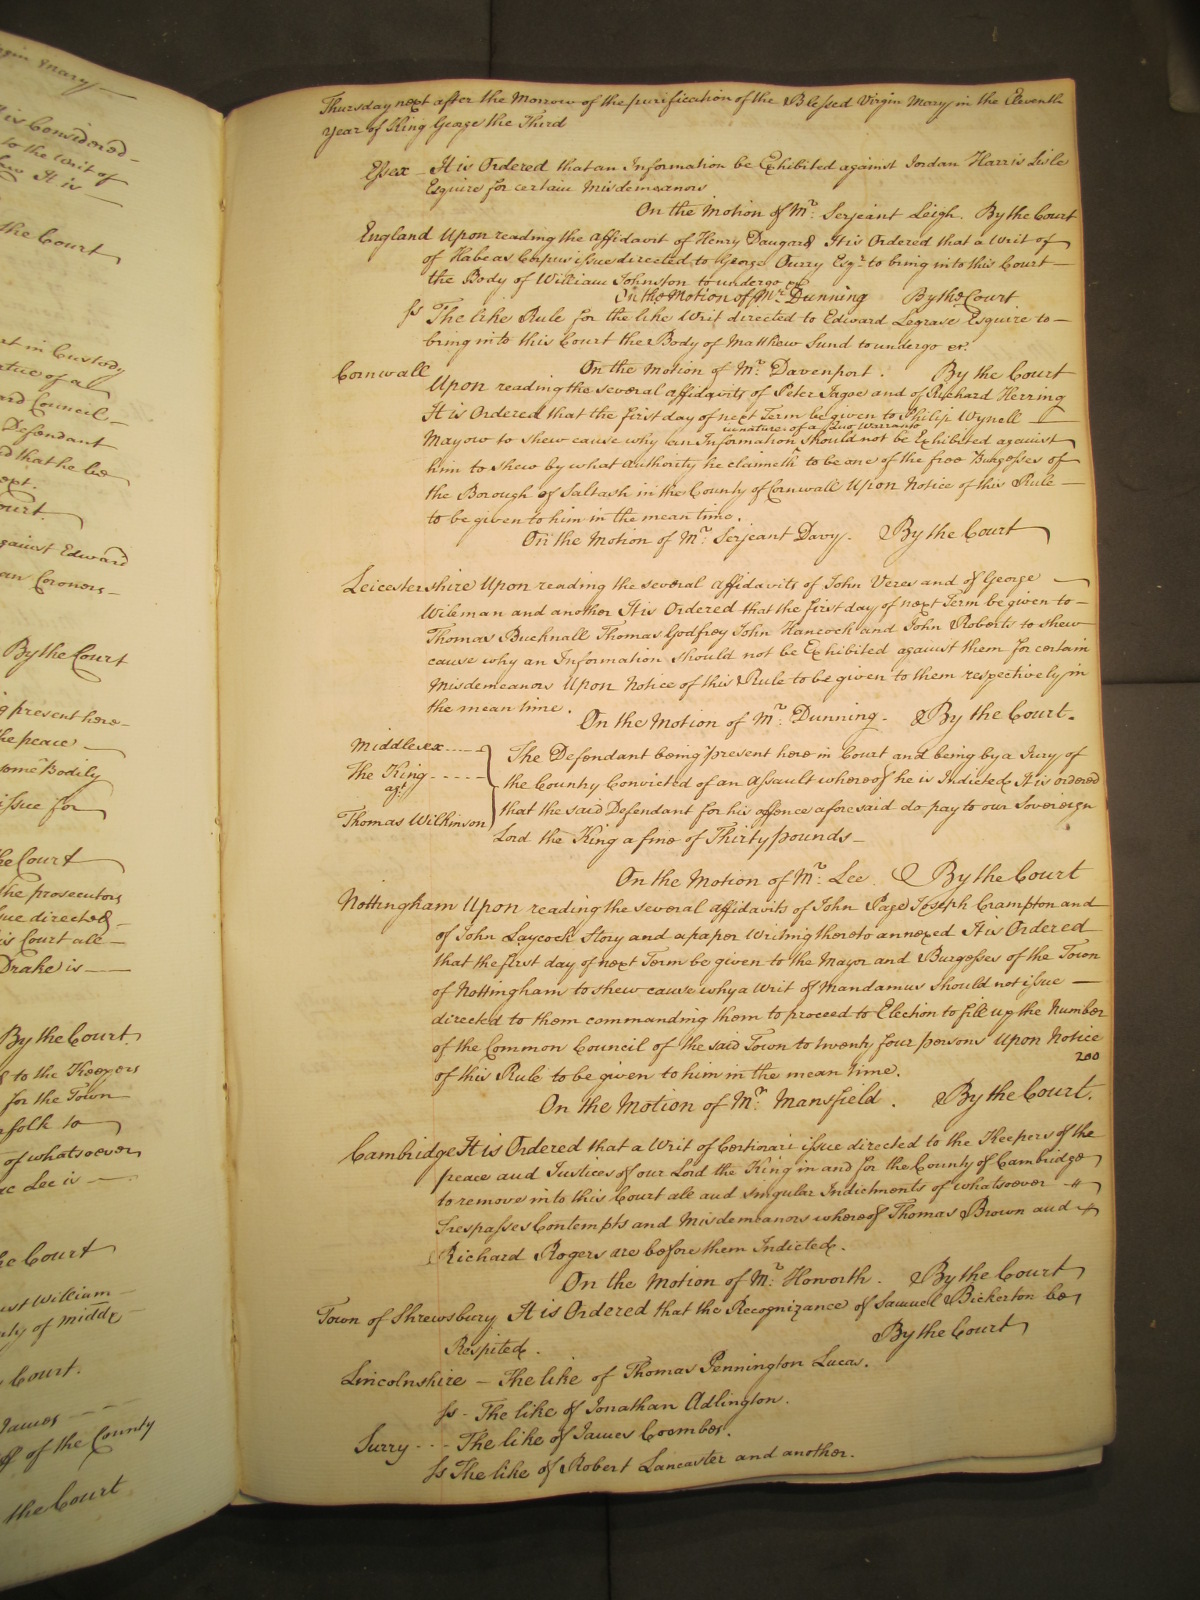 egin Mary
is Considered
to the writ of
It is
the Court
in Custody
virtue of a
Council
Defendant
that he be
next.
Court
against Edward
Coroners
By the Court
present here
the peace
some Bodily
issue for
the Court
the prosecutors
issue directed
is Court all
Drake is
By the Court
to the Keepers
for the Town
folk to
of whatsoever
Lee is
the Court
William
of Middx
Court.
James
of the County
the Court
Thursday next after the Morrow of the purification of the Blessed Virgin Mary in the Eleventh
Year of King George the Third
Essex - It is Ordered that an Information be Exhibited against Jordan Harris Lisle
Esquire for certain Misdemeanors
On the Motion of Mr. Serjeant Leigh. By the Court
England Upon reading the affidavit of Henry Daugard It is Ordered that a Writ of
of Habeas Corpus issue directed to George Ourry Esqr. to bring into this Court
the Body of William Johnston to undergo &c
On the Motion of Mr. Dunning By the Court
ss The like Rule for the like Writ directed to Edward Legrase Esquire to
bring into this Court the Body of Matthew Sund to undergo &c.
On the Motion of Mr. Davenport. By the Court
Cornwall
Upon reading the several affidavits of Peter Jagoe and of Richard Herring
It is Ordered that the first day of next Term be given to Philip Wynell
in nature of a Quo Warranto
Mayow to shew cause why an Information should not be Exhibited against
him to shew by what authority he claimeth to be one of the free Burgesses of
the Borough of Saltash in the County of Cornwall Upon Notice of this Rule
to be given to him in the mean time.
On the Motion of Mr. Serjeant Davy. By the Court
Leicestershire Upon reading the several affidavits of John Veres and of George
Wileman and another It is Ordered that the first day of next Term be given to
Thomas Bucknall Thomas Godfrey John Hancock and John Roberts to shew
cause why an Information should not be Exhibited against them for certain
Misdemeanors Upon Notice of this Rule to be given to them respectively in
the mean time.
On the Motion of Mr. Dunning. By the Court.
Middlesex
The King
agt
Thomas Wilkinson
The Defendant being present here in Court and being by a Jury of
the Country Convicted of an assault whereof he is Indicted It is ordered
that the said Defendant for his offence aforesaid do pay to our Sovereign
Lord the King a fine of Thirty pounds
On the Motion of Mr. Lee. By the Court
Nottingham Upon reading the several affidavits of John Page Joseph Crampton and
of John Laycock Story and a paper Writing thereto annexed It is Ordered
that the first day of next Term be given to the Mayor and Burgesses of the Town
of Nottingham to shew cause why a Writ of Mandamus should not issue
directed to them commanding them to proceed to Election to fill up the Number
of the Common Council of the said Town to twenty four persons Upon Notice
200
of this Rule to be given to him in the mean time.
On the Motion of Mr. Mansfield. By the Court.
Cambridge It is Ordered that a Writ of Certiorari issue directed to the Keepers of the
peace and Justices of our Lord the King in and for the County of Cambridge
to remove into this Court all and singular Indictments of whatsoever
Trespasses Contempts and Misdemeanors whereof Thomas Brown and
Richard Rogers are before them Indicted.
On the Motion of Mr. Howorth. By the Court
Town of Shrewsbury It is Ordered that the Recognizance of Samuel Bickerton be
Respited.
By the Court
Lincolnshire - The like of Thomas Pennington Lucas.
ss - The like of Jonathan Adlington.
Surry - - - The like of James Coomber.
ss The like of Robert Lancaster and another.